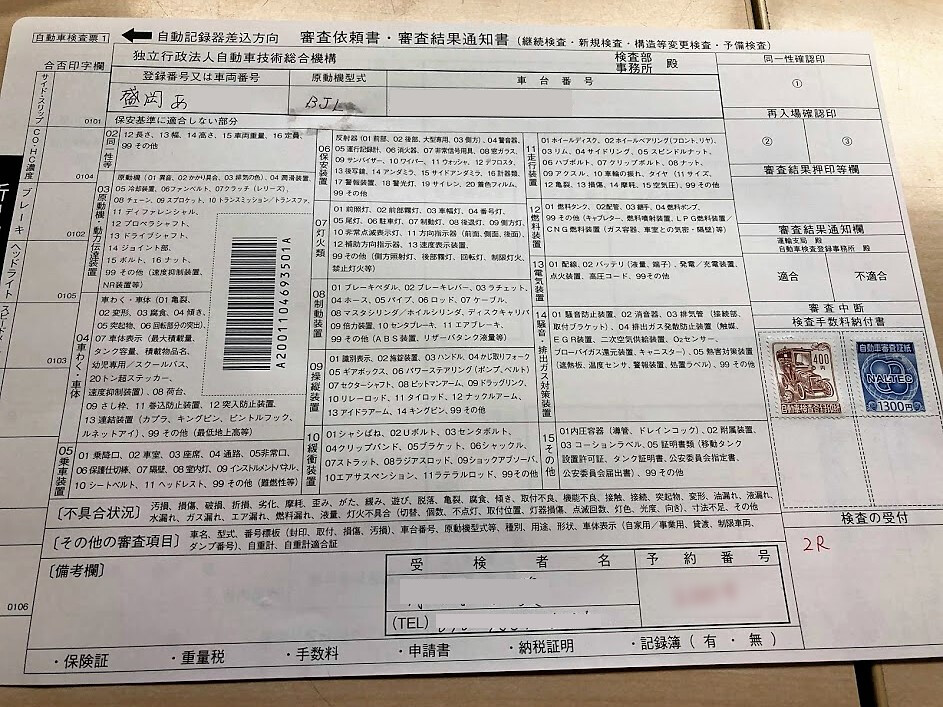 自動車検査票1
自動記録器差込方向
審査依頼書・審査結果通知書 (継続検査・新規検査・構造等変更検査・予備検査)
合否印字欄
独立行政法人自動車技術総合機構
検査部
事務所 殿
同一性確認印
登録番号又は車両番号
原動機型式
車台番号
①
盛岡 あ
BJL
サイド・スリップ
0101
保安基準に適合しない部分
再入場確認印
② ③
CO・HC濃度
0104
ブレーキ
0102
ヘッドライト
0105
0103
0106
02同一性等
12 長さ、13 幅、14 高さ、15 車両重量、16 定員、
99 その他
03原動機 動力伝達装置
原動機 (01 異音、02 かかり具合、03 排気の色)、04 潤滑装置、
05 冷却装置、06ファンベルト、07クラッチ (レリーズ)、
08 チェーン、09 スプロケット、10 トランスミッション/トランスファ、
11 ディファレンシャル、
12 プロペラシャフト、
13 ドライブシャフト、
14 ジョイント部、
15 ボルト、16 ナット、
99 その他 (速度抑制装置、
NR装置等)
04車わく・車体
車わく・車体 (01 亀裂、
02 変形、03 腐食、04 傾き、
05 突起物、06 回転部分の突出)、
07 車体表示 (最大積載量、
タンク容量、積載物品名、
幼児専用/スクールバス、
20トン超ステッカー、
速度抑制装置)、08 荷台、
09 さし枠、11 巻込防止装置、12 突入防止装置、
13 連結装置 (カプラ、キングピン、ピントルフック、
ルネットアイ)、99 その他 (最低地上高等)
A200110469350​1A
05乗車装置
01 乗降口、02 車室、03 座席、04 通路、05非常口、
06保護仕切棒、07 隔壁、08 室内灯、09 インストルメントパネル、
10 シートベルト、11 ヘッドレスト、99 その他 (難燃性等)
06保安装置
反射器 (01 前部、02 後部、大型専用、03 側方)、04 警音器、
05 運行記録計、06 消火器、07 非常信号用具、08 窓ガラス、
09 サンバイザー、10 ワイパー、11 ウォッシャ、12 デフロスタ、
13 後写鏡、14 アンダミラ、15 サイドアンダミラ、16 計器類、
17 警報装置、18 警光灯、19 サイレン、20 着色フィルム、
99 その他
07灯火類
01 前照灯、02 前部霧灯、03 車幅灯、04 番号灯、
05 尾灯、06 駐車灯、07 制動灯、08 後退灯、09 側方灯、
10 非常点滅表示灯、11 方向指示器 (前面、側面、後面)、
12 補助方向指示器、13 速度表示装置、
99 その他 (側方照射灯、後部霧灯、回転灯、制限灯火、
禁止灯火等)
08制動装置
01 ブレーキペダル、02 ブレーキレバー、03 ラチェット、
04 ホース、05 パイプ、06 ロッド、07 ケーブル、
08 マスタシリンダ/ホイルシリンダ、ディスクキャリパ
09 倍力装置、10 センタブレーキ、11 エアブレーキ、
99 その他 (ABS装置、リザーバタンク液量等)
09操縦装置
01 識別表示、02 施錠装置、03 ハンドル、04 かじ取りフォーク
05 ギアボックス、06 パワーステアリング (ポンプ、ベルト)
07 セクターシャフト、08 ピットマンアーム、09 ドラッグリンク、
10 リレーロッド、11 タイロッド、12 ナックルアーム、
13 アイドラアーム、14 キングピン、99 その他
10緩衝装置
01 シャシばね、02 Uボルト、03 センタボルト、
04 クリップバンド、05 ブラケット、06 シャックル、
07ストラット、08 ラジアスロッド、09 ショックアブソーバ、
10エアサスペンション、11 ラテラルロッド、99その他
11走行装置
01 ホイールディスク、02 ホイールベアリング (フロント、リヤ)、
03 リム、04 サイドリング、05 スピンドルナット、
06 ハブボルト、07 クリップボルト、08 ナット、
09 アクスル、10 車輪の振れ、タイヤ (11 サイズ、
12 亀裂、13 損傷、14 摩耗、15 空気圧)、99 その他
12燃料装置
01 燃料タンク、02 配管、03 継手、04 燃料ポンプ、
99 その他 (キャブレター、燃料噴射装置、LPG燃料装置/
CNG燃料装置 (ガス容器、車室との気密・隔壁) 等)
13電気装置
01 配線、02 バッテリ (液量、端子)、発電/充電装置、
点火装置、高圧コード、99その他
14騒音・排出ガス対策装置
01 騒音防止装置、02 消音器、03 排気管 (接続部、
取付ブラケット)、04 排出ガス発散防止装置 (触媒、
EGR装置、二次空気供給装置、O₂センサー、
ブローバイガス還元装置、キャニスター)、05 熱害対策装置
(遮熱板、温度センサ、警報装置、処置ラベル)、99 その他
15その他
01内圧容器 (導管、ドレインコック)、02 附属装置、
03 コーションラベル、05 証明書類 (移動タンク
設置許可証、タンク証明書、公安委員会指定書、
公安委員会届出書)、99 その他
審査結果押印等欄
審査結果通知欄
運輸支局 殿
自動車検査登録事務所 殿
適合 不適合
審査中断
検査手数料納付書
400
円
自動車審査証紙
NALTEC
1300円
[不具合状況]
汚損、損傷、破損、折損、劣化、摩耗、歪み、がた、緩み、遊び、脱落、亀裂、腐食、傾き、取付不良、機能不良、接触、接続、突起物、変形、油漏れ、液漏れ、
水漏れ、ガス漏れ、エア漏れ、燃料漏れ、液量、灯火不具合 (切替、個数、不点灯、取付位置、灯器損傷、点滅回数、灯色、光度、向き)、寸法不足、その他
[その他の審査項目]
車名、型式、番号標板 (封印、取付、損傷、汚損)、車台番号、原動機型式等、種別、用途、形状、車体表示 (自家用/事業用、貸渡、制限車両、
ダンプ番号)、自重計、自重計適合証
検査の受付
2R
[備考欄]
受検者名
予約番号
(TEL)
・保険証 ・重量税 ・手数料 ・申請書 ・納税証明 ・記録簿 (有・無)